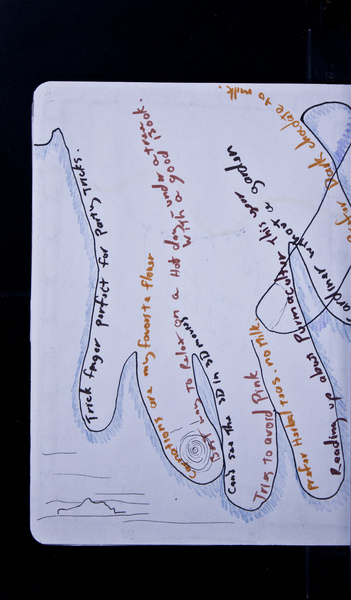 Trick finger perfect for Party Tricks.
Carnations are my favorite flower
Best way to Relax on a Hot day - under a tree
with a good book.
Can't see the 3D in 3D movies
Tries to avoid Pink
Prefer Herbal teas. no milk.
Reading up about Permaculture This year
without a garden
Dark chocolate to
milk.